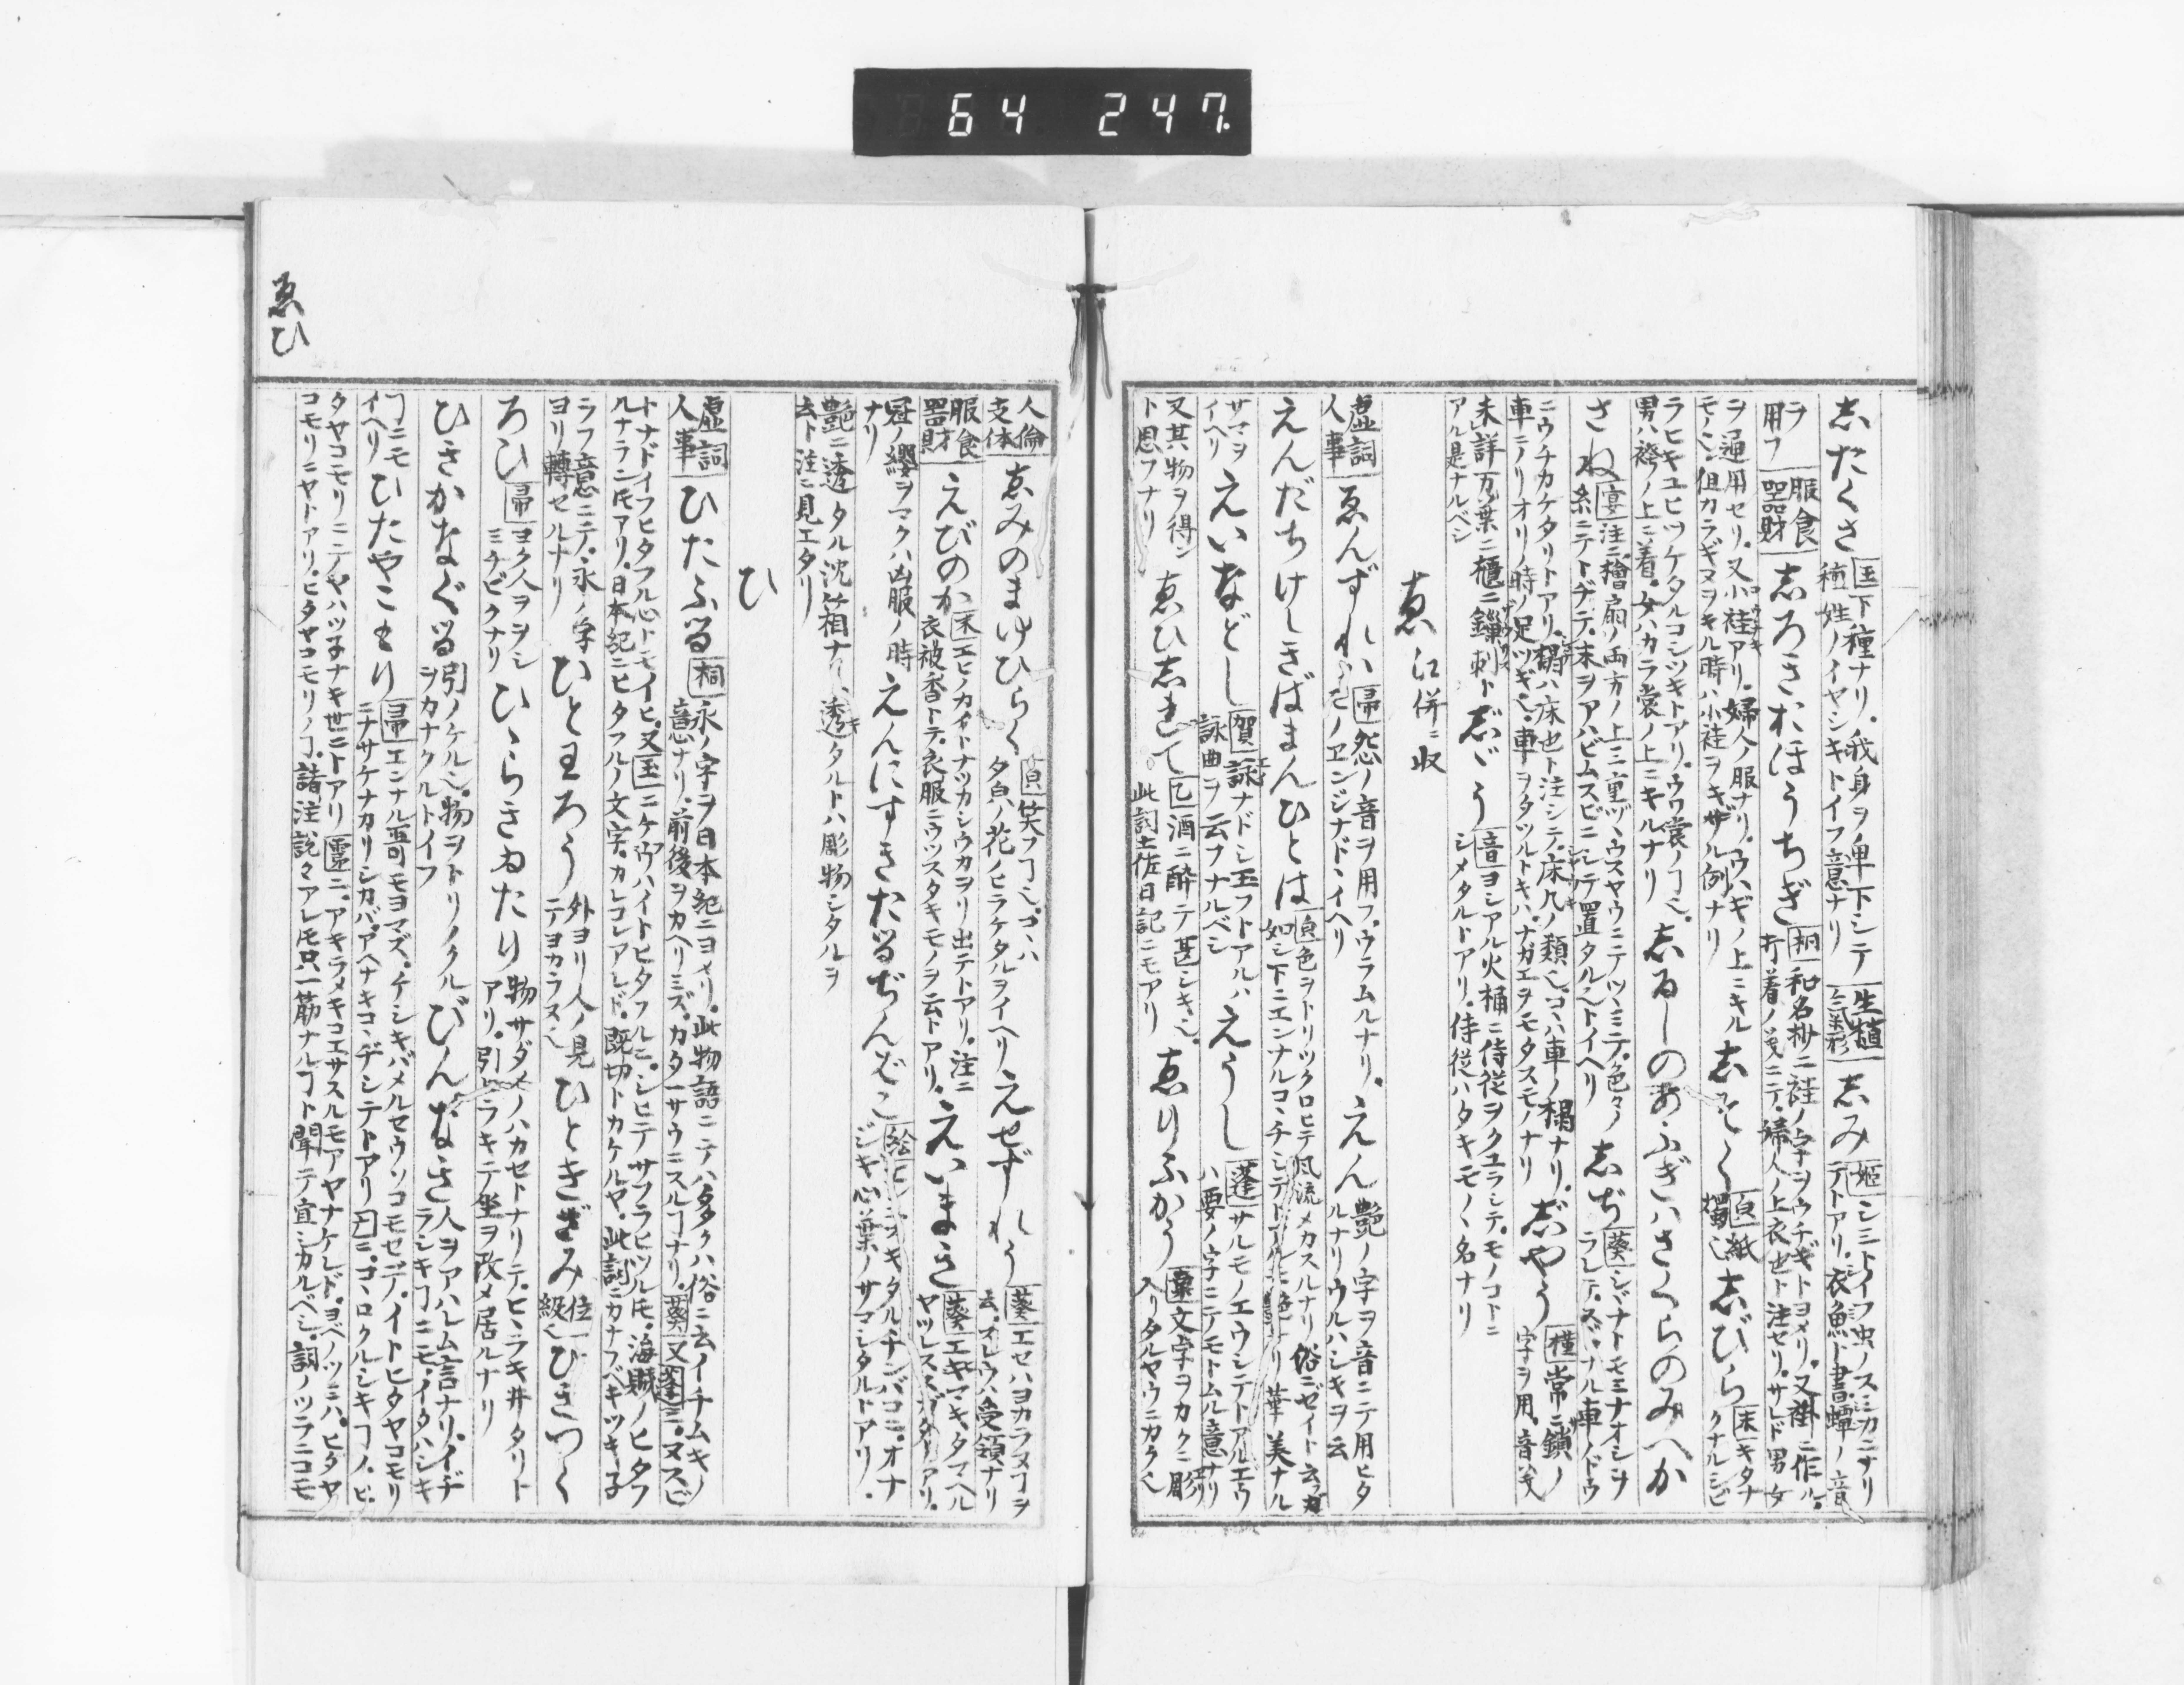 64 247.
志たくさ 玉 下種ナリ。我身ヲ卑下シテ
種姓ノイヤシキトイフ意ナリ
生植
気形
志み 姫 シミトイフ虫ノスミカニナリ
テトアリ。衣魚ト書。蟫ノ音
ヲ
用フ
服食
器財
志ろきおほうちぎ 桐 和名抄ニ袿ノ字ヲウチギトヨメリ。又褂ニ作ル。
打着ノ義ニテ。婦人ノ上衣也ト注セリ。サレド男女
ヲ通用セリ。又小袿アリ。婦人ノ服ナリ。ウハギノ上ニキル
モノ也。但カラギヌヲキル時ハ小袿ヲキザル例ナリ
志そく 㒵 紙
燭也
志びら 末 キタナ
クナルシビ
ラヒキユヒツケタルコシツキトアリ。ウワ裳ノコト也。
男ハ袴ノ上ニ着。女ハカラ裳ノ上ニキルナリ
志るしのあふぎハさくらのみへか
さね 宴 注ニ檜扇ノ両方ノ上三重ヅヽウスヤウニテツヽミテ。色々ノ
糸ニテトヂテ。末ヲアハビムスビニシテ置タル也トイヘリ
志ぢ 葵 シヂナトモミナオシヲ
ラレテ。スヾナル車ノドウ
ニウチカケタリトアリ。榻ハ床也ト注シテ。床几ノ類也。コヽハ車ノ榻ナリ。
車ニノリオリノ時ノ足ツギ也。車ヲタツルトキハ。ナガエヲモタスモノナリ
志やう 槿 常ニ鎖ノ
字ヲ用。音義
未詳万葉ニ櫃ニ鏁刺ト
アル是ナルベシ
志゛う 音 ヨシアル火桶ニ侍従ヲクユラシテ。モノコトニ
シメタルトアリ。侍従ハタキモノヽ名ナリ
ゑ 江併ニ収
虚詞
人事
ゑんずれい 帚 怨ノ音ヲ用フ。ウラムルナリ。
モノヱンジナドヽイヘリ
えん 艶ノ字ヲ音ニテ用ヒタ
ルナリウルハシキヲ云
えんだちけしきばまんひとは 㒵 色ヲトリツクロヒテ風流メカスルナリ俗ニゼイト云ガ
如シ下ニエンナルコヽチシテ
華美ナル
サマヲ
イヘリ
えいなどし 賀 詠ナドシ玉フトアルハ
詠曲ヲ云フナルベシ
えうし 蓬 サルモノエウシテトアルエウ
ハ要ノ字ニテモトムル意ナリ
又其物ヲ得ン
ト思フナリ
ゑひ志れて 乙 酒ニ酔テ甚シキ也。
此詞土佐日記ニモアリ
ゑりふかう 葉 文字ヲカクニ彫
入リタルヤウニカク也
人倫
支体
ゑみのまけひらく 㒵 笑フコト也。コヽハ
夕㒵ノ花ノヒラケタルヲイヘリ
えせずれう 葵 エセハヨカラヌコトヲ
云。ズレウハ受領ナリ
服食
器財
えびのか 末 エビノカイトナツカシウカヲリ出テトアリ。注ニ
衣被香トテ。衣服ニウツスタキモノヲ云トアリ。
えいまき 葵 エイマキタマヘル
ヤツレスガタトアリ。
冠ノ纓ヲマクハ凶服ノ時
ナリ
えんにすきたるぢんばこ 絵 エンニスキタルチンバコニ。オナ
ジキ心葉ノサマシタルトアリ。
艶ニ透タル沈箱ナリ。透タルトハ彫物シタルヲ
云ト注ニ見エタリ
ひ
虚詞
人事
ひたふる 桐 永ノ字ヲ日本紀ニヨメリ。此物語ニテハ多クハ俗ニ云イチムキノ
意ナリ。前後ヲカヘリミズ。カターサウニスルコトナリ。葵又蓬ニ。ヌスビ
トナドイフヒタフル心トモイヒ。又玉ニケウハイトヒタフルニ。シヒテサフラヒツルトモ。海賊ノヒタフ
ルナラントモアリ。日本紀ニヒタフルノ文字。カレコレアレド。既切トカケルヤ。此詞ニカナフベキツキ子
ラフ意ニテ。永ノ字
ヨリ轉セルナリ
ひとわろう 外ヨリ人ノ見
テヨカラヌ也
ひときざみ 位一
級也
ひきつく
ろひ 帚 ヨク人ヲヲシ
ミチビクナリ
ひヽらきゐたり 物サダメノハカセトナリテ。ヒヽラキ井タリト
アリ。引ヒラキテ坐ヲ改メ居ルナリ
ひきかなぐる 引ノケル也。物ヲトリノクル
ヲカナクルトイフ
びんなき 人ヲアハレム言ナリ。イヂ
ラシキコトニモ。イタハシキ
コトニモ
イヘリ
ひたやこもり 帚 エンナル哥モヨマズ。ケシキバメルセウソコモセデ。イトヒタヤコモリ
ニナサケナカリシカバ。アヘナキコヽチシテトアリ 又ニ。コヽロクルシキコトノ。ヒ
タヤコモリニテヤハツ子ナキ世ニトアリ 霊ニ。アキラメキコエサスルモアヤナケレド。ヨベノツミハ。ヒタヤ
コモリニヤトアリ。ヒタヤコモリノコト。諸注説々アレトモ只一筋ナルコトト聞テ宜シカルベシ。詞ノツラニコモ
ゑひ